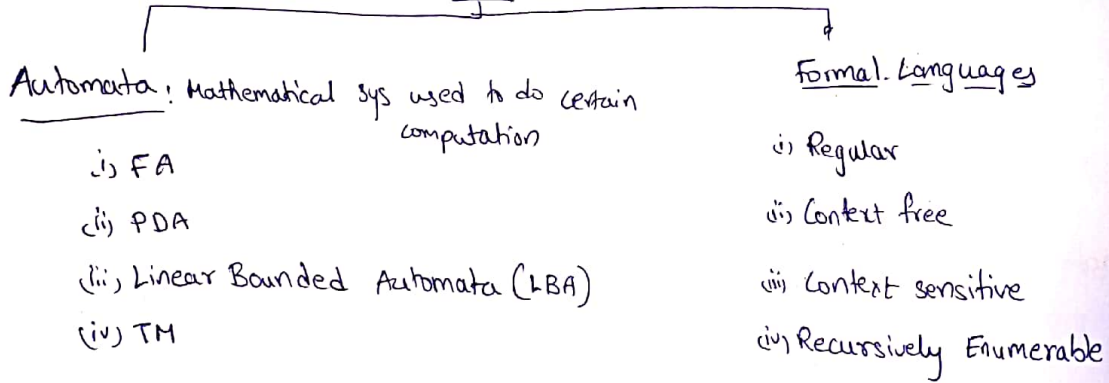 Automata : Mathematical sys used to do certain
computation
(i) FA
(ii) PDA
(iii) Linear Bounded Automata (LBA)
(iv) TM
Formal Languages
(i) Regular
(ii) Context free
(iii) Context sensitive
(iv) Recursively Enumerable